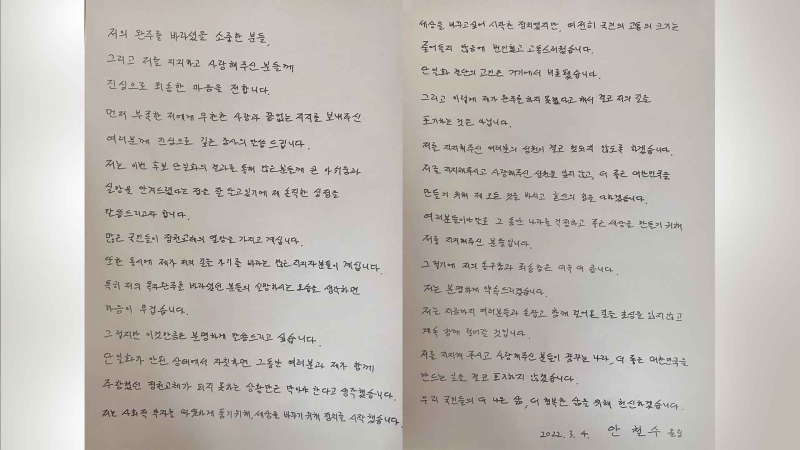 저의 완주를 바라셨을 소중한 분들,
그리고 저를 지지하고 사랑해주신 분들께
진심으로 죄송한 마음을 전합니다.
먼저 부족한 저에게 무한한 사랑과 끝없는 지지를 보내주신
여러분께 진심으로 깊은 감사의 말씀 드립니다.
저는 이번 후보 단일화의 결과를 통해 많은분들께 큰 아쉬움과
실망을 안겨드렸다는 점을 잘 알고있기에 제 솔직한 심정을
말씀드리고자 합니다.
많은 국민들이 정권교체의 열망을 가지고 계십니다.
또한 동시에 제가 저의 길을 가기를 바라는 많은 지지자분들이 계십니다.
특히 저의 독자완주를 바라셨던 분들의 실망하시는 모습을 생각하면
마음이 무겁습니다.
그렇지만 이것만큼은 분명하게 말씀드리고 싶습니다.
단일화가 안된 상태에서 자칫하면 그동안 여러분과 제가 함께
주장했던 정권교체가 되지 못하는 상황만은 막아야 한다고 생각했습니다.
저는 사회적 약자를 따뜻하게 품기위해, 세상을 바꾸기위해 정치를 시작했습니다.
세상을 바꾸고싶어 시작한 정치였지만, 여전히 국민의 고통의 크기는
줄어들지 않음에 번민했고 고통스러웠습니다.
단일화 결단의 고민은 거기에서 비롯됐습니다.
그리고 이렇게 제가 완주를 하지 못했다고 해서 결코 저의 길을
포기하는 것은 아닙니다.
저를 지지해주신 여러분의 성원이 결코 헛되지 않도록 하겠습니다.
저를 지지해주시고 사랑해주신 성원을 잊지 않고, 더 좋은 대한민국을
만들기 위해 제 모든 것을 바치고 혼신의 힘을 다하겠습니다.
여러분들이야말로 그 동안 나라를 걱정하고 좋은 세상을 만들기 위해
저를 지지해주신 분들입니다.
그렇기에 저의 송구함과 죄송함은 더욱 더 큽니다.
저는 분명하게 약속드리겠습니다.
저는 지금까지 여러분들과 손잡고 함께 걸어온 길을 초심을 잃지 않고
계속 함께 걸어갈 것입니다.
저를 지지해 주시고 사랑해주신 분들이 꿈꾸는 나라, 더 좋은 대한민국을
만드는 일을 결코 포기하지 않겠습니다.
우리 국민들의 더 나은 삶, 더 행복한 삶을 위해 헌신하겠습니다.
2022. 3. 4. 안철수 올림